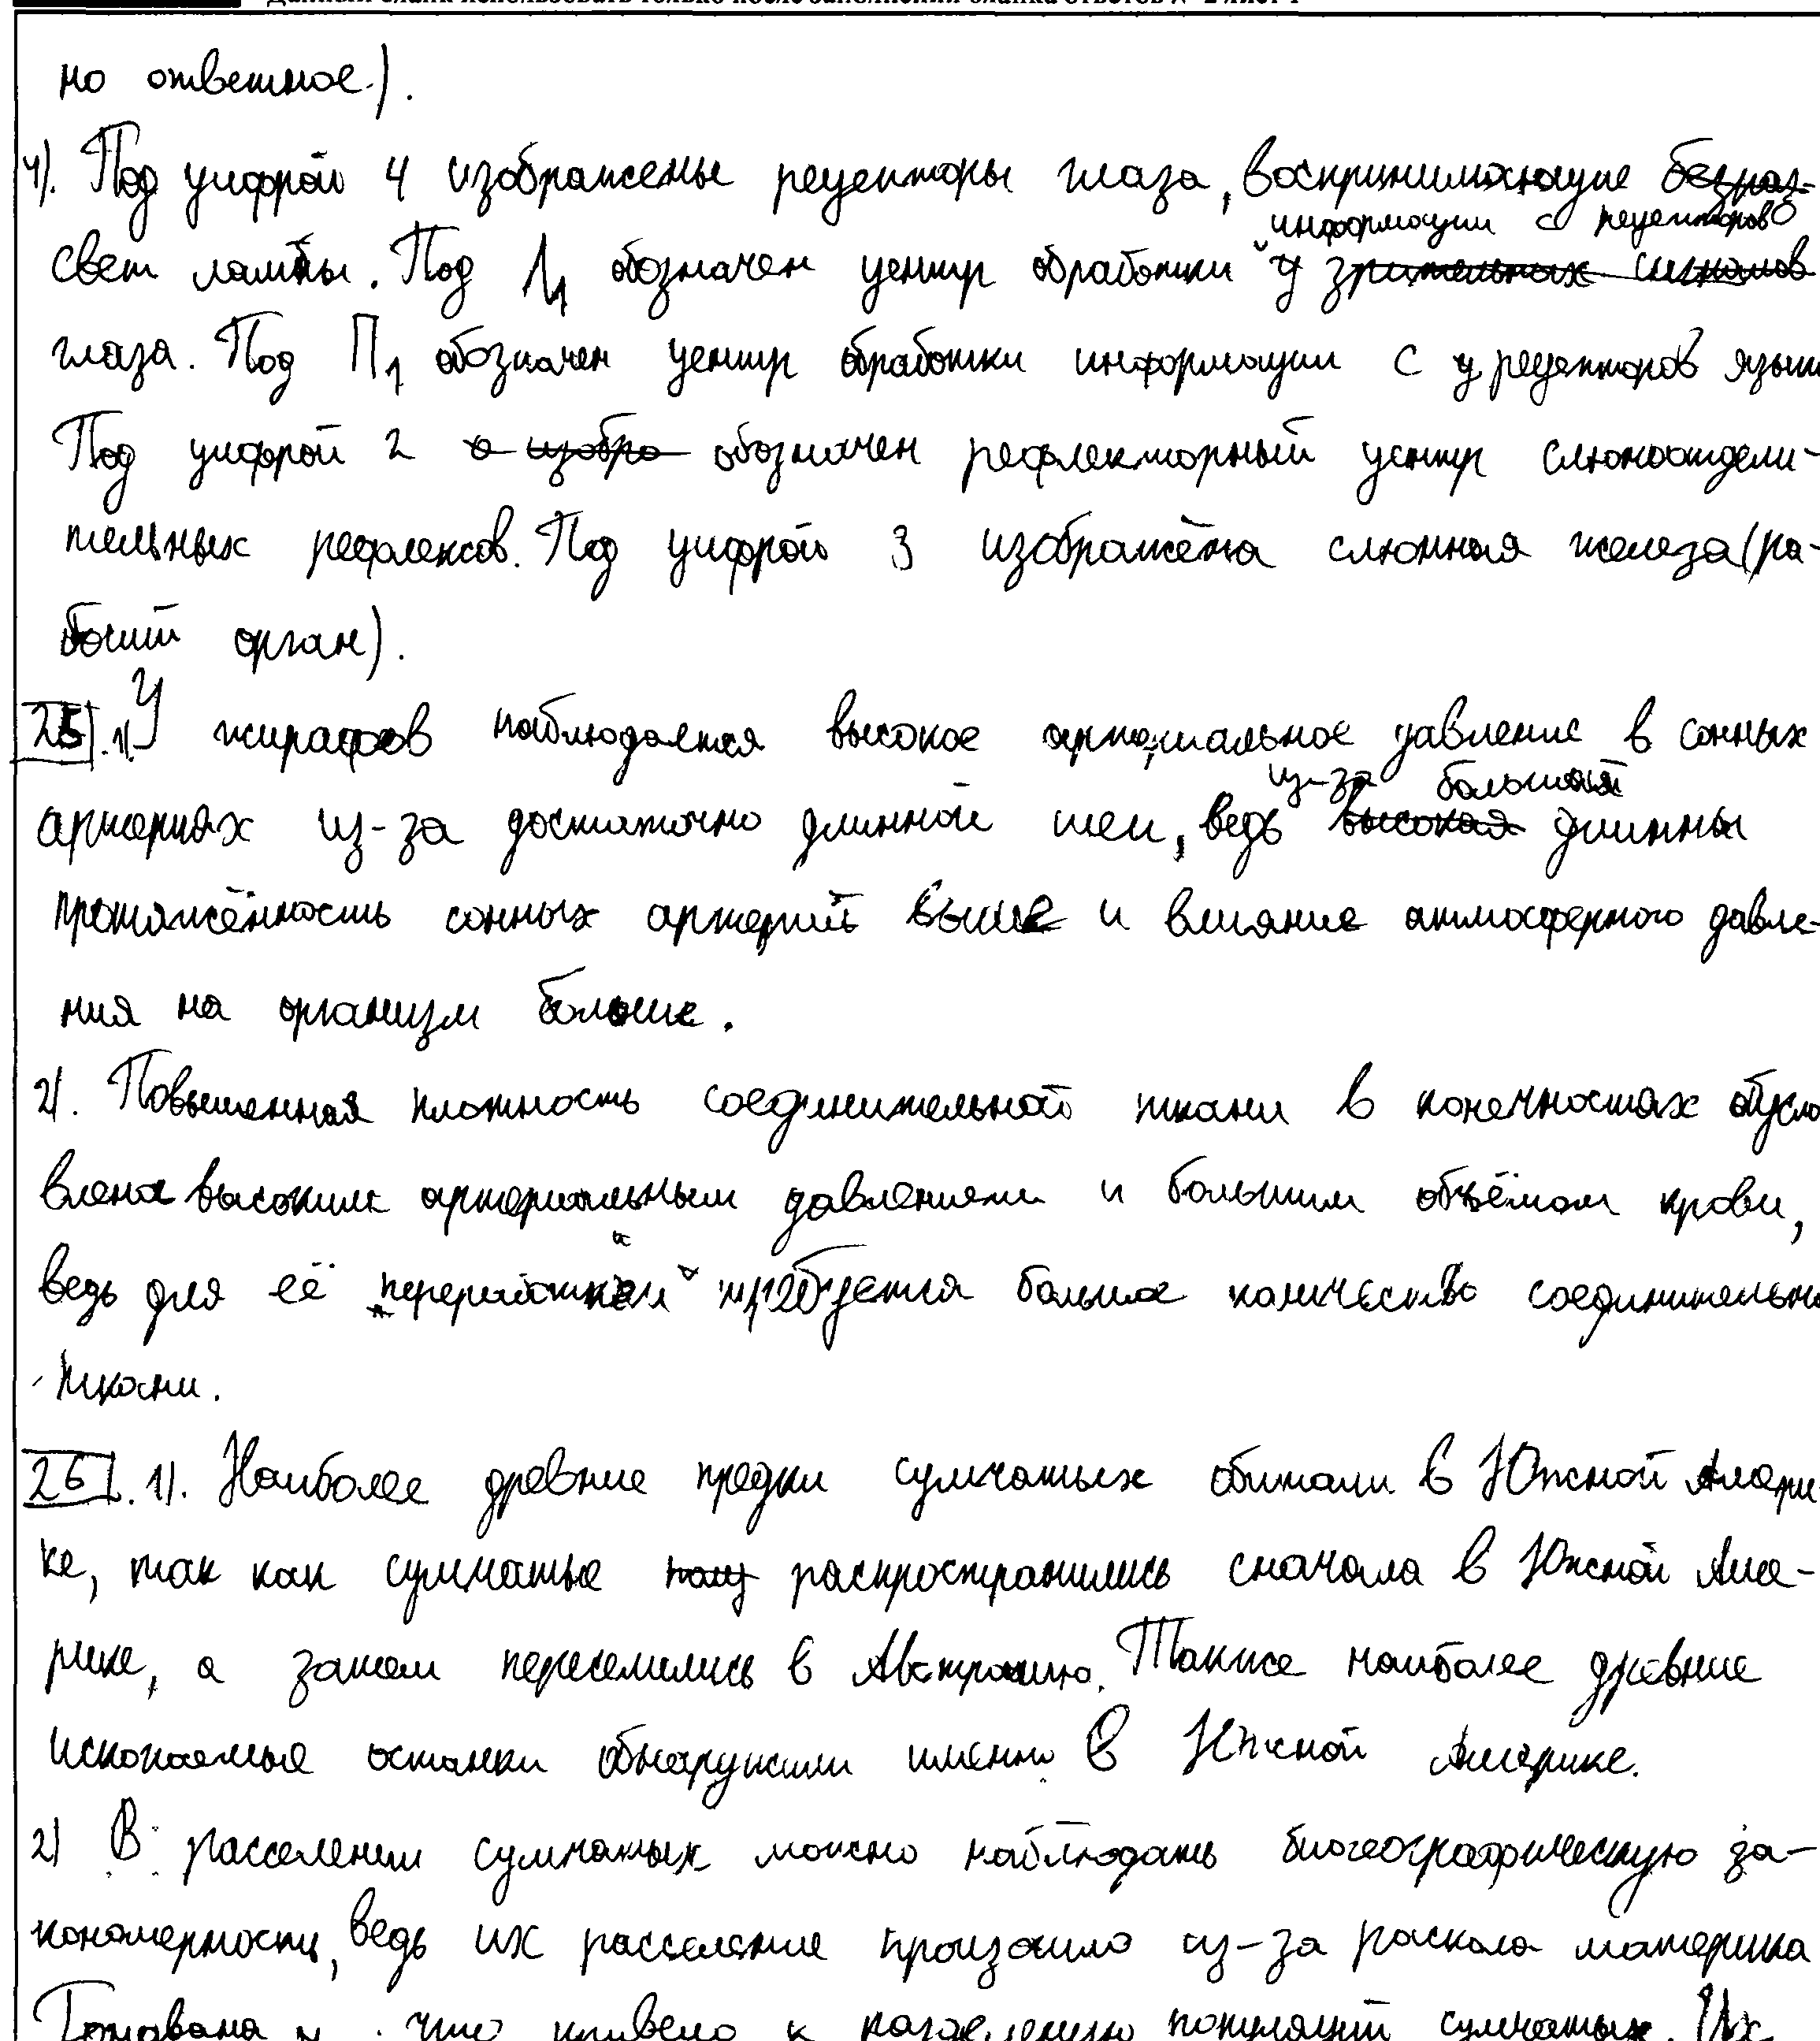 Данный бланк использовать только после заполнения бланка ответов № 2 лист 1
но ответное).
4). Под цифрой 4 изображены рецепторы глаза, воспринимающие
информации с рецепторов
свет лампы. Под Л1 обозначен центр обработки
глаза. Под П1 обозначен центр обработки информации с рецепторов язык
Под цифрой 2 обозначен рефлекторный центр слюноотдели-
тельных рефлексов. Под цифрой 3 изображёна слюнная железа (ра-
бочий орган).
25. 1). У жирафов наблюдается высокое артериальное давление в сонных
из-за большой
артериях из-за достаточно длинной шеи, ведь высокая длинны
протяжённость сонных артерий выше и влияние атмосферного давле-
ния на организм больше.
2). Повышенная плотность соединительной ткани в конечностях обусло
влена высоким артериальным давлением и большим объёмом крови,
ведь для её требуется больше количество соединительно
ткани.
26. 1). Наиболее древние предки сумчатых обитали в Южной Амери-
ке, так как сумчатые распространились сначала в Южной Аме-
рике, а затем переселились в Австралию. Также наиболее древние
ископаемые останки обнаружили именно в Южной Америке.
2) В расселении сумчатых можно наблюдать биогеографическую за-
кономерность, ведь их расселение произошло из-за раскола материка
Гондвана что привело к разделению популяций сумчатых. Их